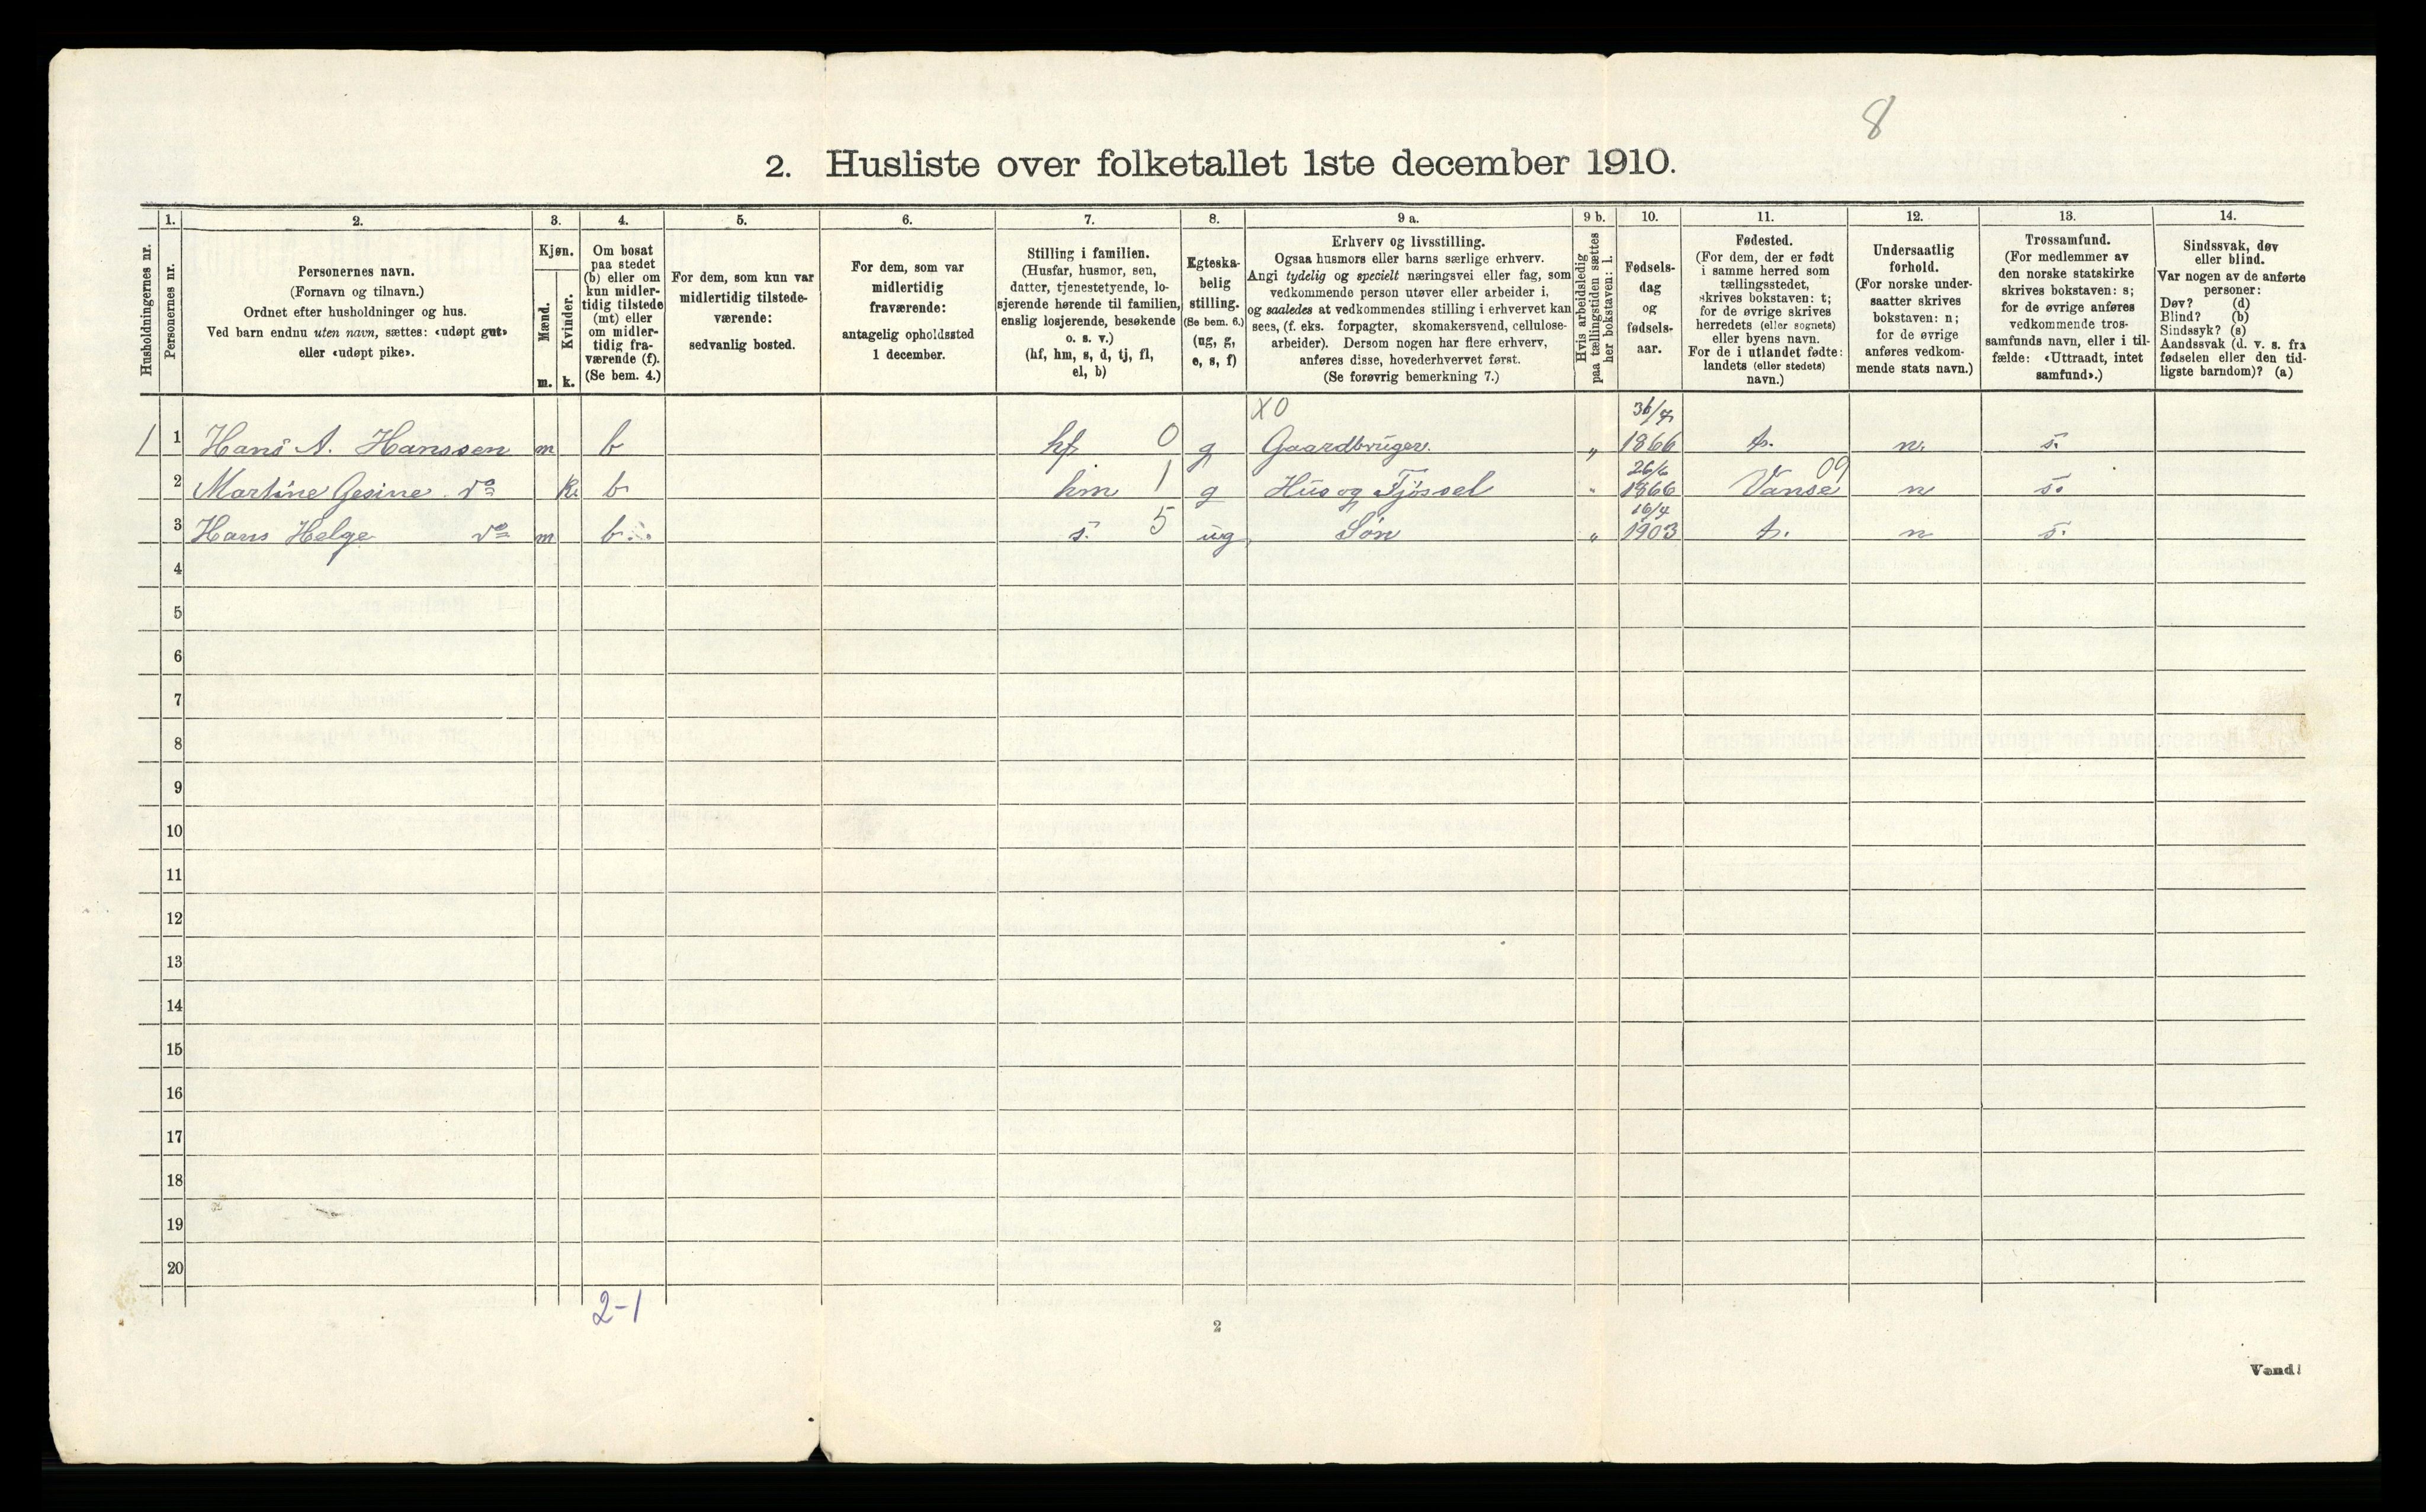 8
2. Husliste over folketallet 1ste december 1910.
Husholdningernes nr.
1.
Personernes nr.
2.
Personernes navn.
(Fornavn og tilnavn.)
Ordnet efter husholdninger og hus.
Ved barn endnu uten navn, sættes: «udøpt gut»
eller «udøpt pike».
3.
Kjøn.
Mænd.
Kvinder.
m. k.
4.
Om bosat
paa stedet
(b) eller om
kun midler-
tidig tilstede
(mt) eller
om midler-
tidig fra-
værende (f).
(Se bem. 4.)
5.
For dem, som kun var
midlertidig tilstede-
værende:
sedvanlig bosted.
6.
For dem, som var
midlertidig
fraværende:
antagelig opholdssted
1 december.
7.
Stilling i familien.
(Husfar, husmor, søn,
datter, tjenestetyende, lo-
sjerende hørende til familien,
enslig losjerende, besøkende
o. s. v.)
(hf, hm, s, d, tj, fl,
el, b)
8.
Egteska-
belig
stilling.
(Se bem. 6.)
(ug, g,
e, s, f)
9 a.
Erhverv og livsstilling.
Ogsaa husmors eller barns særlige erhverv.
Angi tydelig og specielt næringsvei eller fag, som
vedkommende person utøver eller arbeider i,
og saaledes at vedkommendes stilling i erhvervet kan
sees, (f. eks. forpagter, skomakersvend, cellulose-
arbeider). Dersom nogen har flere erhverv,
anføres disse, hovederhvervet først.
(Se forøvrig bemerkning 7.)
9 b.
Hvis arbeidsledig
paa tællingstiden sættes
her bokstaven: l.
10.
Fødsels-
dag
og
fødsels-
aar.
11.
Fødested.
(For dem, der er født
i samme herred som
tællingsstedet,
skrives bokstaven: t;
for de øvrige skrives
herredets (eller sognets)
eller byens navn.
For de i utlandet fødte:
landets (eller stedets)
navn.)
12.
Undersaatlig
forhold.
(For norske under-
saatter skrives
bokstaven: n;
for de øvrige
anføres vedkom-
mende stats navn.)
13.
Trossamfund.
(For medlemmer av
den norske statskirke
skrives bokstaven: s;
for de øvrige anføres
vedkommende tros-
samfunds navn, eller i til-
fælde: «Uttraadt, intet
samfund».)
14.
Sindssvak, døv
eller blind.
Var nogen av de anførte
personer:
Døv? (d)
Blind? (b)
Sindssyk? (s)
Aandssvak (d. v. s. fra
fødselen eller den tid-
ligste barndom)? (a)
X0
1 1 Hans A. Hanssen m b hf 0 g Gaardbruger. „ 1866 t. n. s.
26/6
2 Martine Gesine do k. b hm 1 g Hus og Fjøssel „ 1866 Vanse 09 n s.
16/4
3 Hans Helge do m b. s. 5 ug Søn „ 1903 t. n s.
4
5
6
7
8
9
10
11
12
13
14
15
16
17
18
19
20
2-1
2
Vend!